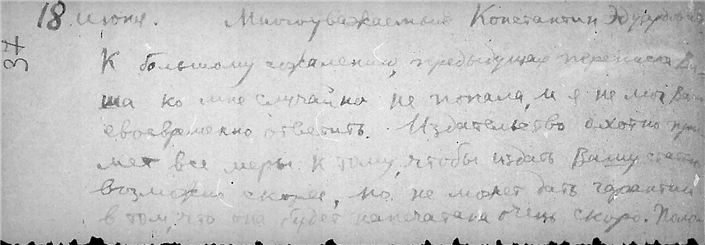 18 июня. Многоуважаемый Константин Эдуардович,
37
К большому сожалению, предыдущая переписка Ва-
ша ко мне случайно не попала, и я не мог Вам
своевременно ответить. Издательство охотно при-
мет все меры к тому, чтобы издать Вашу статью
возможно скорее, но не может дать гарантии
в том, что она будет напечатана очень скоро.